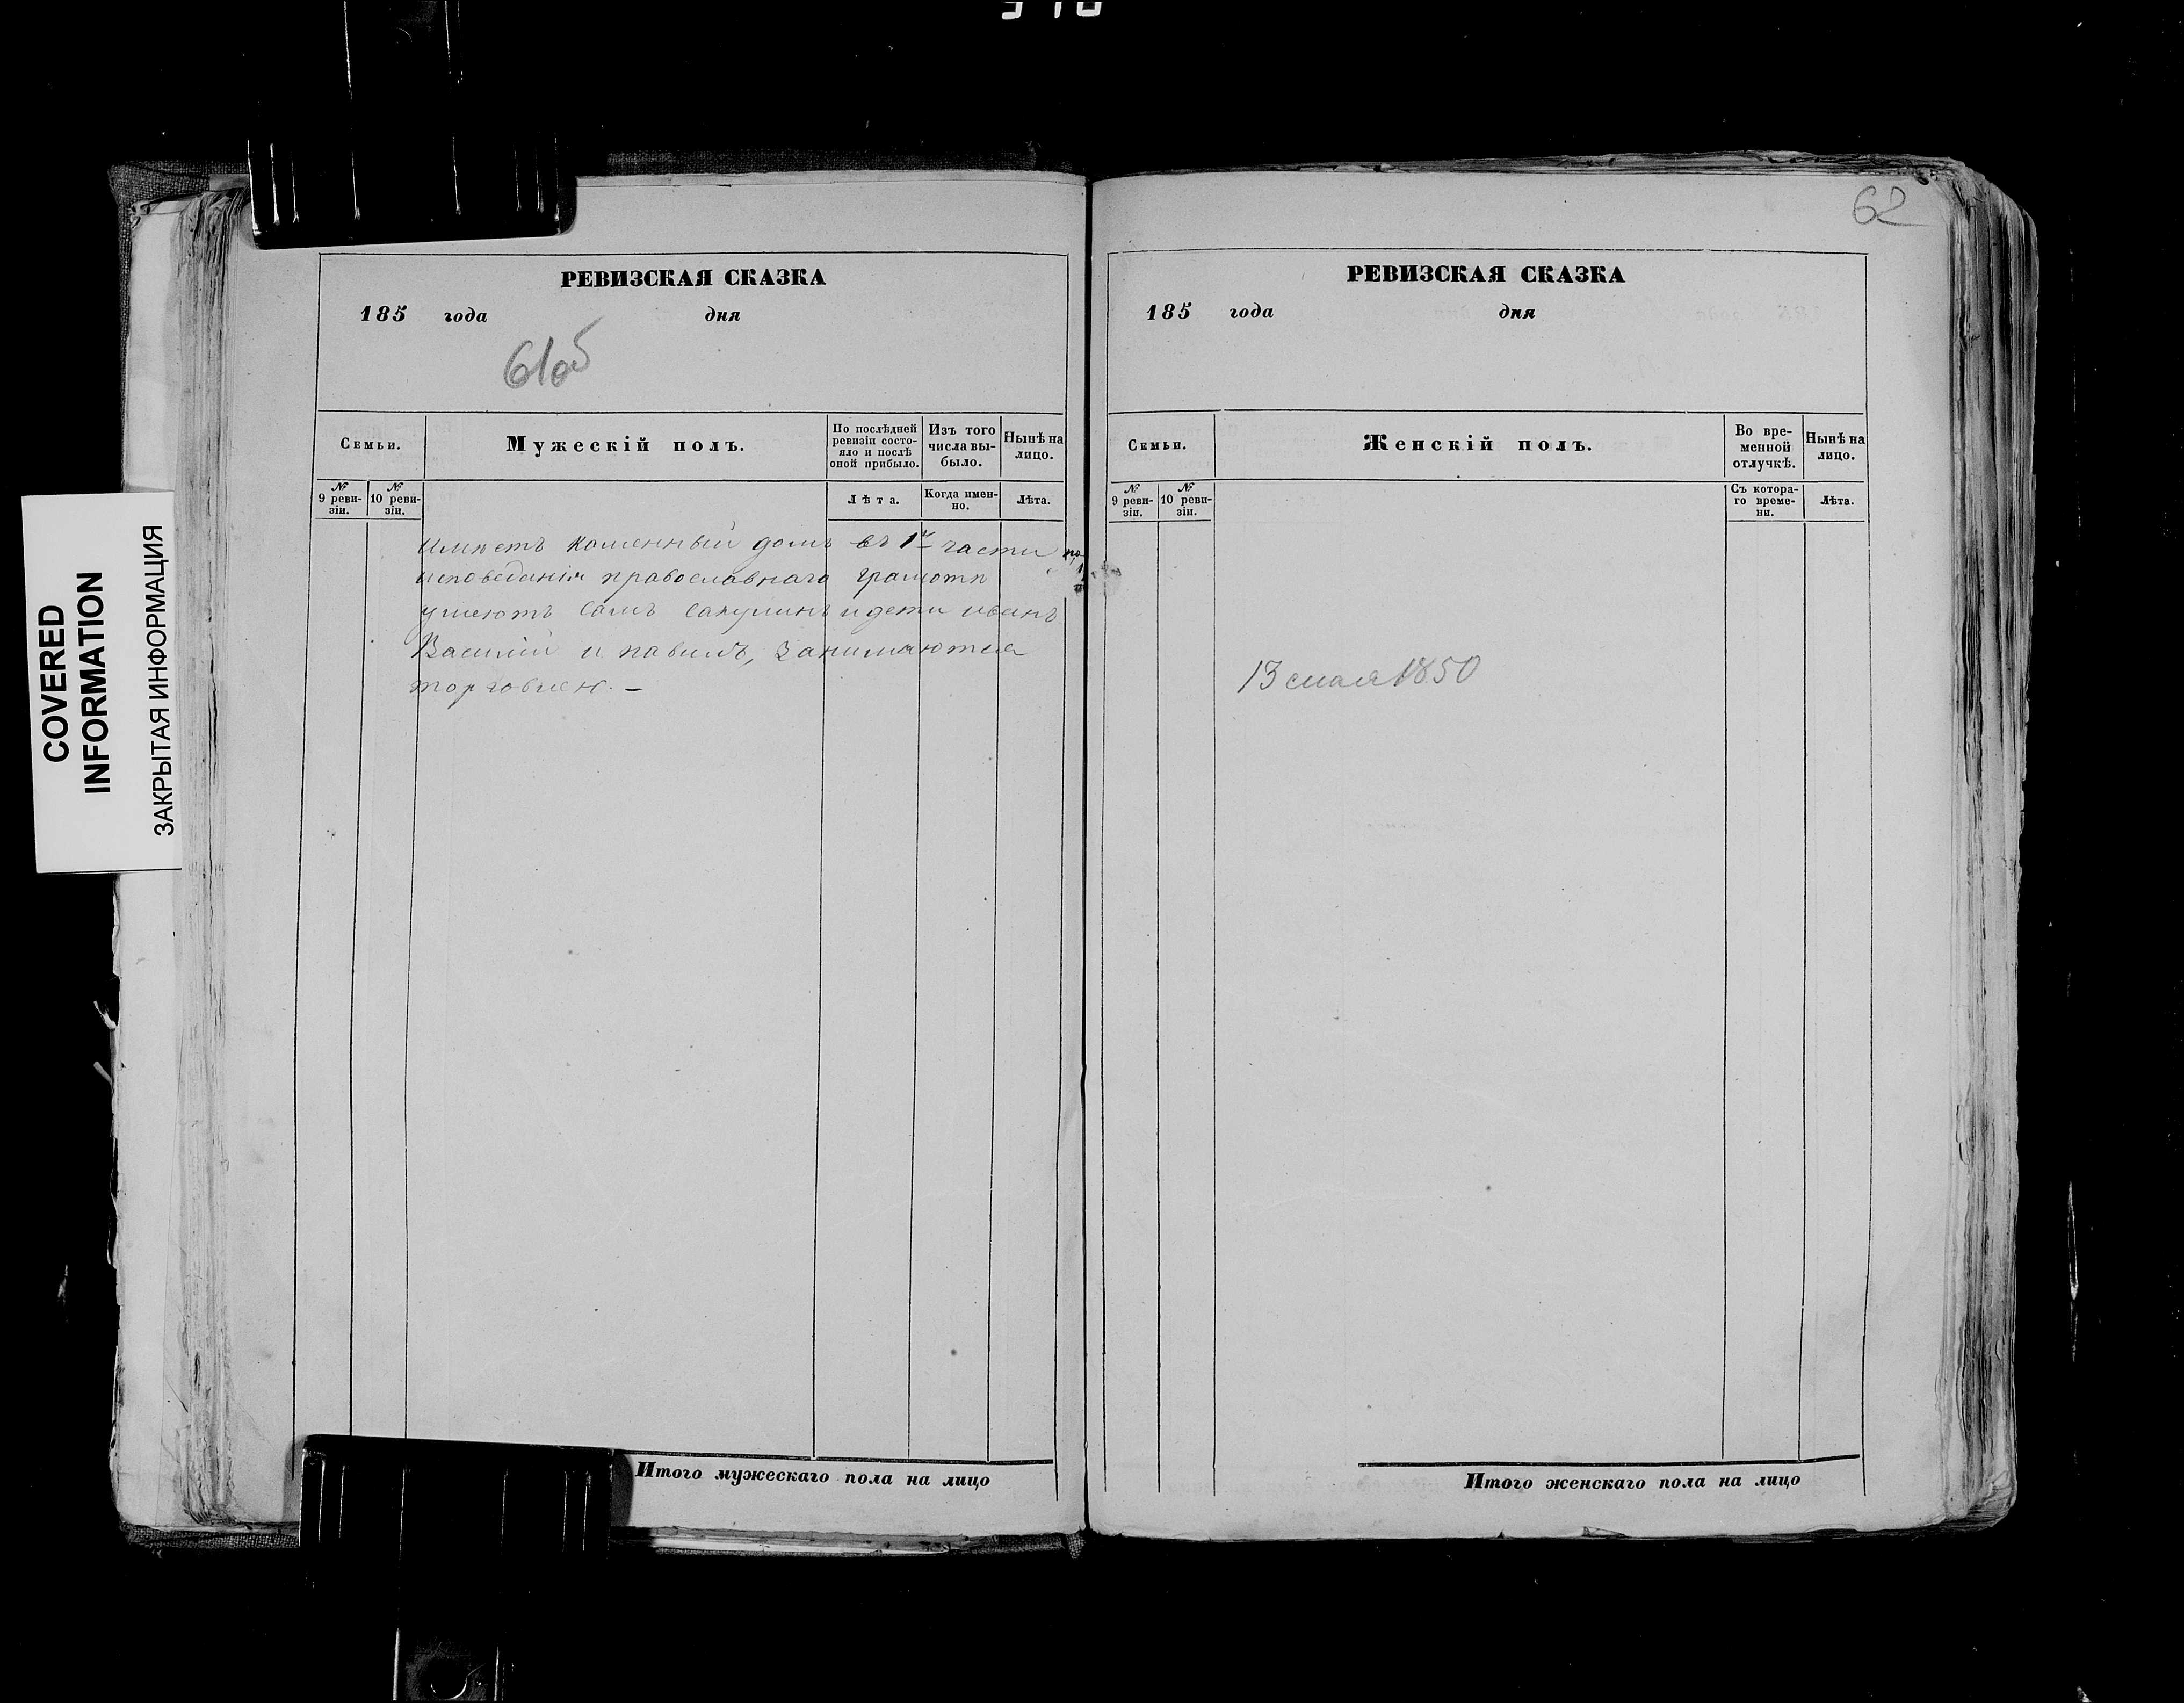 COVERED
INFORMATION
ЗАКРЫТАЯ ИНФОРМАЦИЯ
РЕВИЗСКАЯ СКАЗКА
185 года дня
61об
Семьи.
Мужескій полъ.
По послѣдней
ревизіи состо-
яло и послѣ
оной прибыло.
Изъ того
числа вы-
было.
Нынѣ на
лицо.
№
9 реви-
зіи.
№
10 реви-
зіи.
Лѣта.
Когда имен-
но.
Лѣта.
имѣетъ каменный домъ въ 1й части
исповеданія православнаго грамотѣ
умеютъ самъ и дети иванъ
Василий и павилъ, занимаются
торговлею. –
Итого мужескаго пола на лицо
62
РЕВИЗСКАЯ СКАЗКА
185 года дня
Семьи.
Женскій полъ.
Во вре-
менной
отлучкѣ.
Нынѣ на
лицо.
№
9 реви-
зіи.
№
10 реви-
зіи.
Съ котора-
го време-
ни.
Лѣта.
13 мая 1850
Итого женскаго пола на лицо